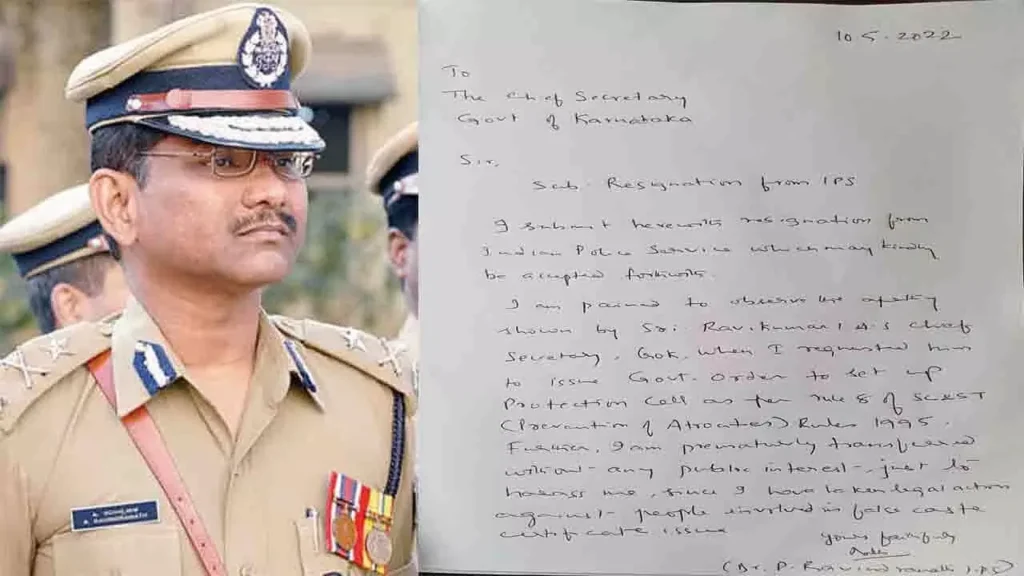 10.5.2022
To
The Chief Secretary
Govt of Karnataka
Sir,
Sub. Resignation from IPS
I submit herewith resignation from
Indian Police Service which may kindly
be accepted forthwith.
I am pained to observe the apathy
shown by Sri Ravikumar I A.S chief
Secretary, GoK. when I requested him
to issue Govt. order to set up
Protection Cell as per rule 8 of SC&ST
(Prevention of Atrocities) Rules 1995.
Further, I am prematurely transferred
without any public interest, just to
harass me, since I have taken legal action
against people involved in false caste
certificate issue
yours faithfully
(Dr. P. Ravindranath I.P.S)